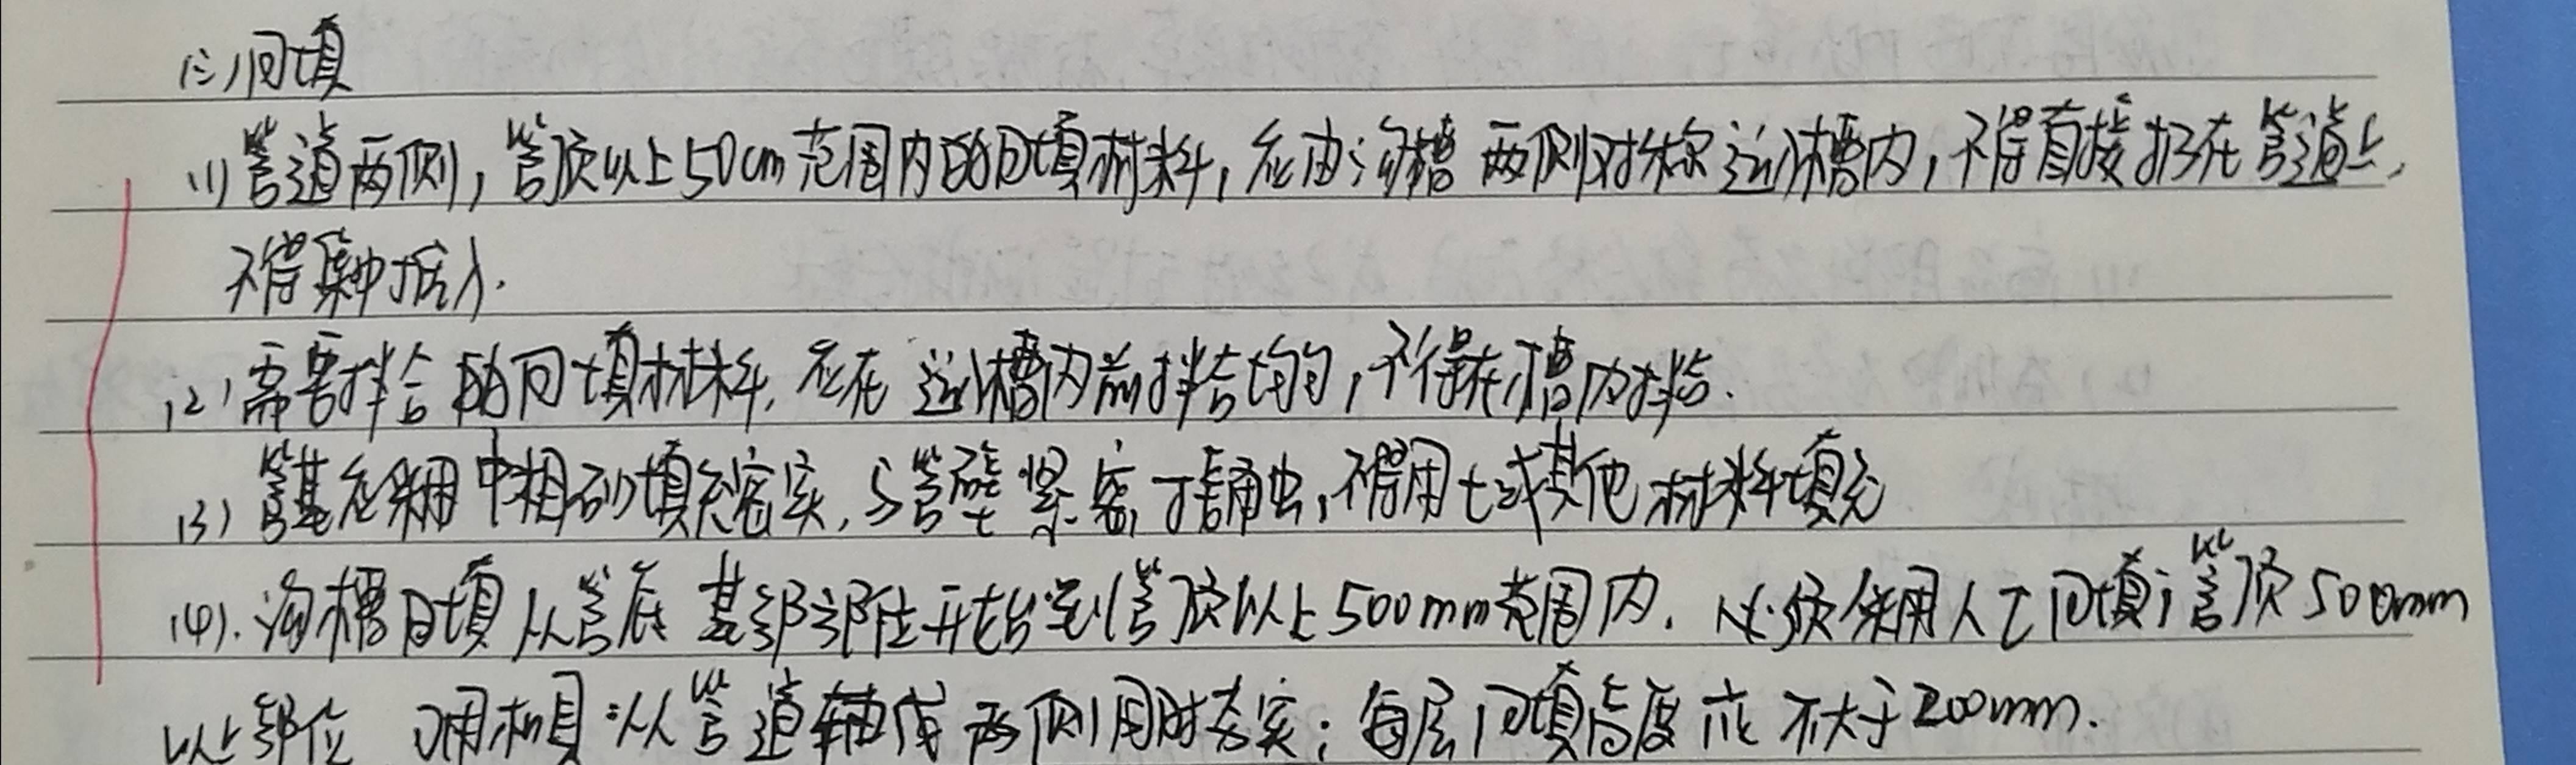 (三)回填
(1)管道两侧,管顶以上50cm范围内的回填材料,应由沟槽两侧对称运入槽内,不得直接扔在管道上,
不得集中推入.
(2)需要拌合的回填材料,应在运入槽内前拌合均匀,不得在槽内拌合.
(3)管基应采用中粗砂填充密实,与管壁紧密接触,不得用土或其他材料填充
(4).沟槽回填从管底基部部位开始到管顶以上500mm范围内.必须采用人工回填;管顶500mm
以上部位 可用机具从管道轴线两侧同时夯实;每层回填高度应不大于200mm.